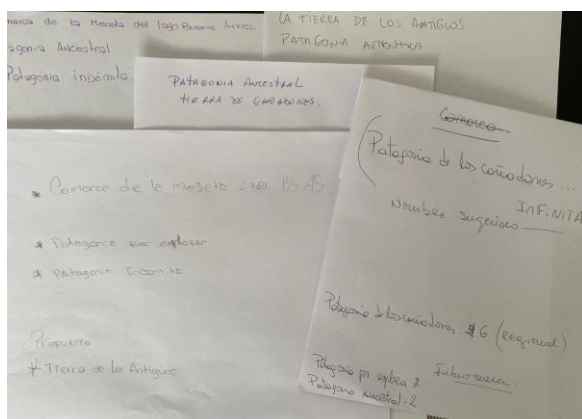 de la Meseta del lago Buenos Aires.
Patagonia Ancestral
Patagonia indómita.
LA TIERRA DE LOS ANTIGUOS
PATAGONIA
PATAGONIA ANCESTRAL
TIERRA DE CAÑADONES.
* Comarca de la meseta Lago BS AS
* Patagonia por explorar
* Patagonia
Propuesta
* Tierra de los Antiguos
Comarca
(Patagonia de los cañadones ...
INFINITA
Nombre sugerido
Patagonia de los cañadones. 6 (regional)
Patagonia por explorar 2
Patagonia ancestral. 2